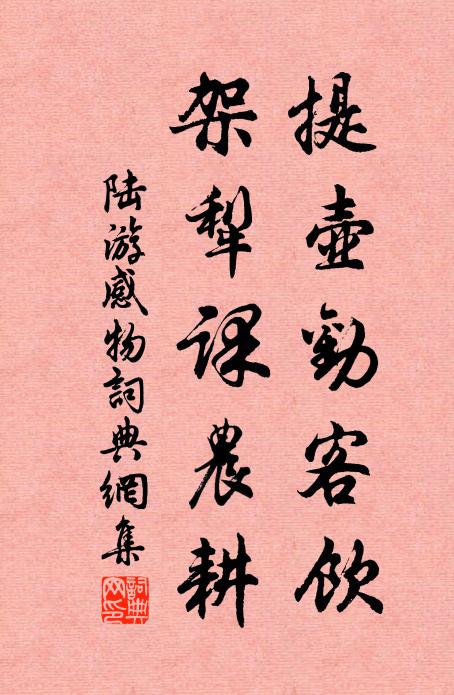 提壺勸客飲
架犁課農耕
陸游感物詞典網集
詞典網印